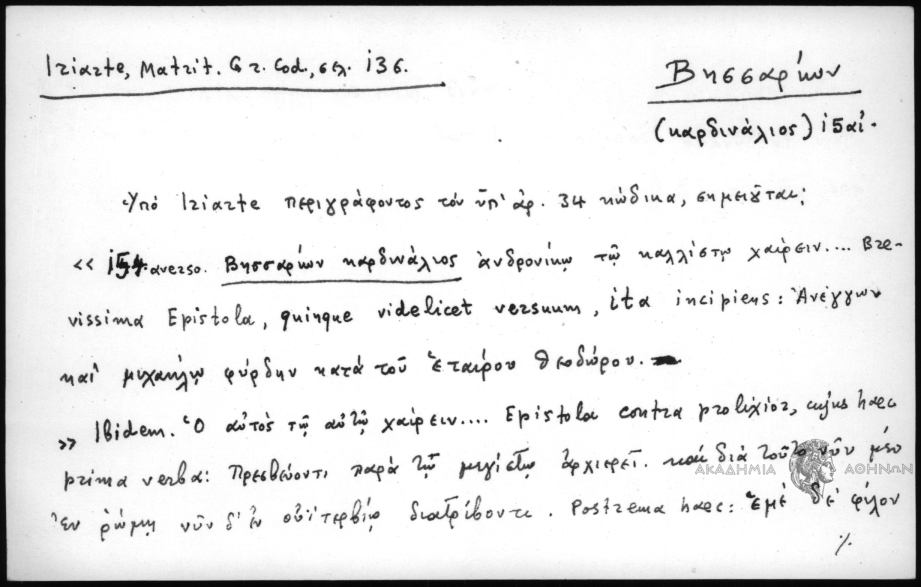 Iriarte, Matrit. Gr. Cod., σελ. 136.
Βησσαρίων
(καρδινάλιος) 15 αἰ.
Ὑπό Iriarte περιγράφοντος τόν ὑπ' ἀρ. 34 κώδικα, σημειοῦται:
« averso. Βησσαρίων καρδινάλιος ἀνδρονίκῳ τῷ καλλίστῳ χαίρειν.... Bre-
vissima Epistola, quinque videlicet versuum, ita incipiens: Ἀνέγνων
καί μιχαήλῳ φύρδην κατά τοῦ ἑταίρου θεοδώρου. —
» Ibidem. Ὁ αὐτός τῷ αὐτῷ χαίρειν.... Epistola contra prolixior, cujus haec
prima verba: Πρεσβεύοντι παρά τῷ μεγίστῳ ἀρχιερεῖ. καί διά τοῦτο νῦν μέν
ἐν ῥώμῃ νῦν δ' ἐν οὐϊτερβίῳ διατρίβοντι. Postrema haec: Ἐμέ δέ φίλον
%
ΑΚΑΔΗΜΙΑ ΑΘΗΝΩΝ